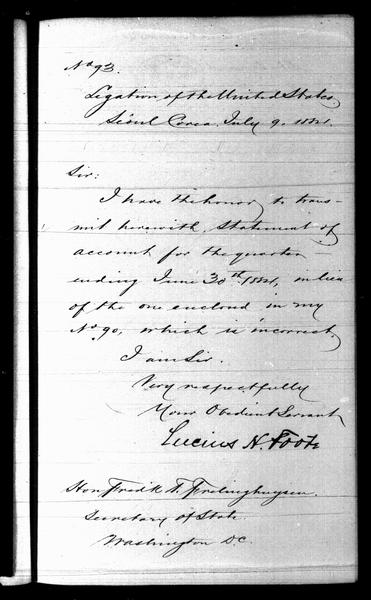 No 93.
Legation of the United States.
Séoul Corea. July 9. 1884.
Sir:
I have the honor to trans-
mit herewith, statement of
account for the quarter
ending June 30th 1884, in lieu
of the one enclosed in my
No 90, which is incorrect.
I am Sir.
Very respectfully
Your Obedient Servant
Lucius H. Foote
Hon Fredk T. Frelinghuysen.
Secretary of State
Washington D.C.